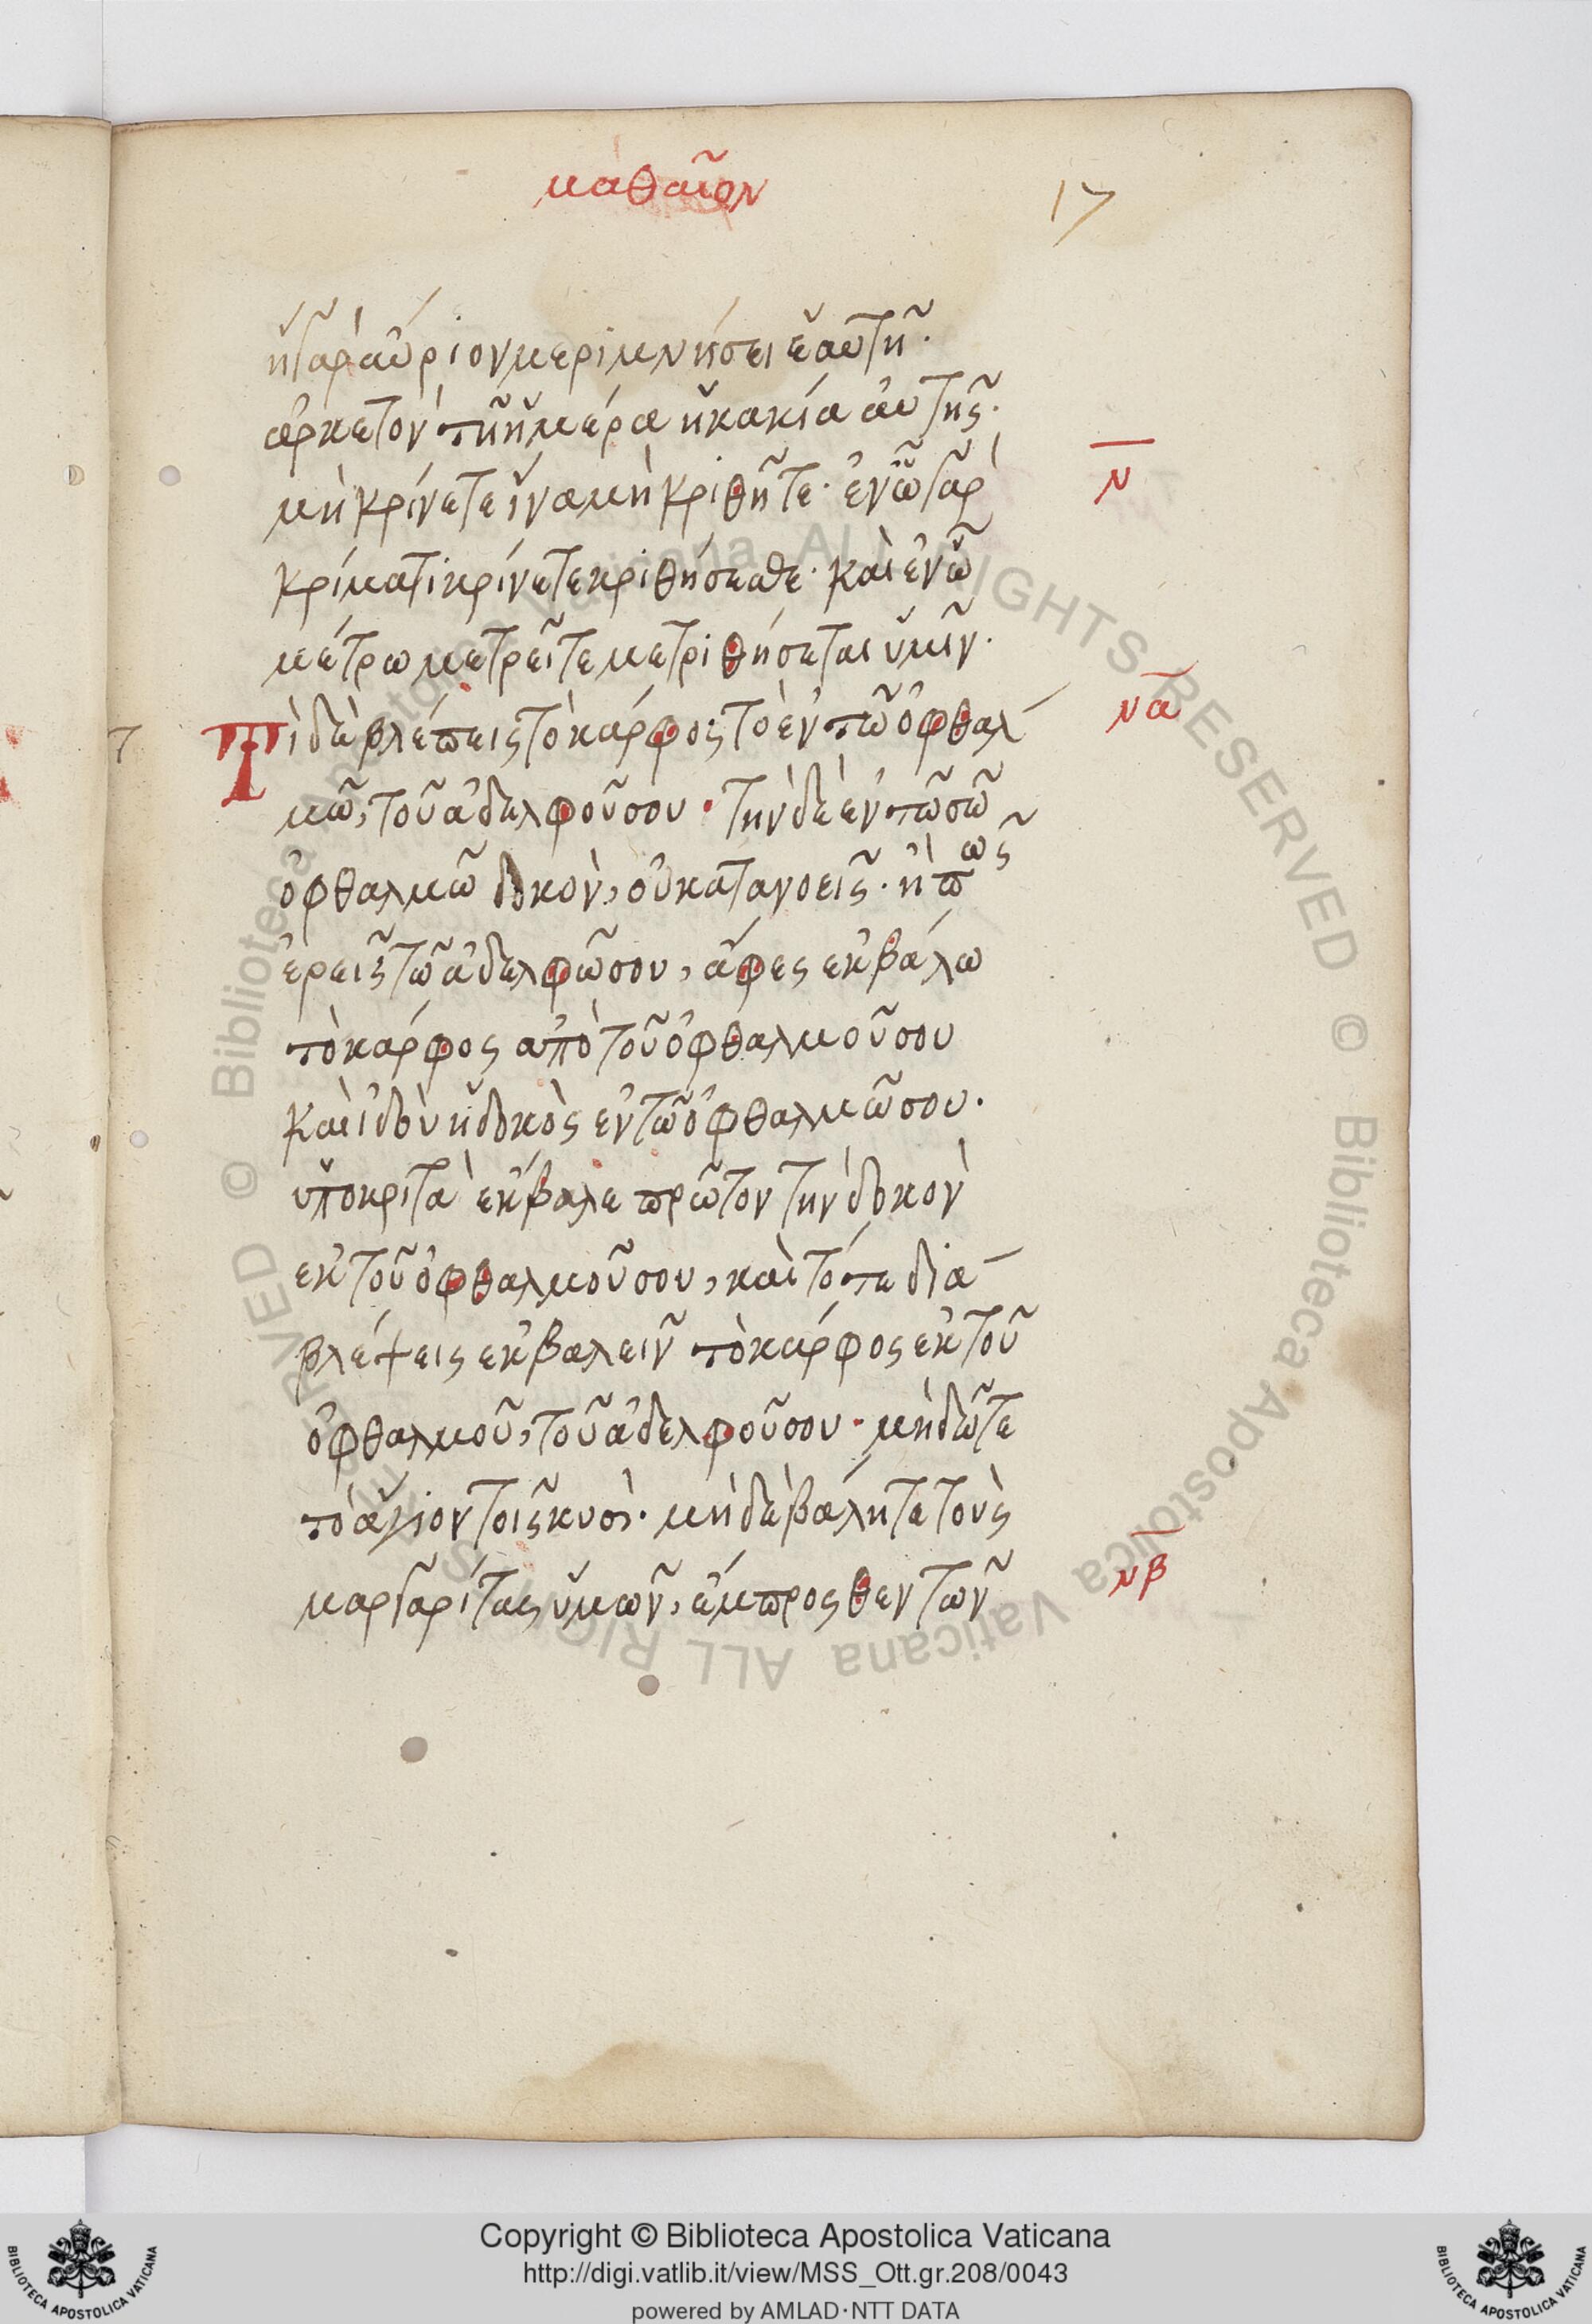 ματθαῖον
17
ἡ γὰρ αὔριον μεριμνήσει ἑαυτῆ·
ἀρκετὸν τῆ ἡμέρα ἡ κακία αὐτῆς·
μὴ κρίνετε ἵνα μὴ κριθῆτε· ἐν ὧ γὰρ
ν
κρίματι κρίνετε κριθήσεσθε· καὶ ἐν ὧ
μέτρω μετρεῖτε μετριθήσεται ὑμῖν·
Τὶ δὲ βλέπεις τὸ κάρφος τὸ ἐν τῶ ὀφθαλ
να
μῶ, τοῦ ἀδελφοῦ σου· τὴν δὲ ἐν τῶ σῶ
ὀφθαλμῶ δοκὸν, οὐ κατανοεῖς· ἢ πῶς
ἐρεῖς τῶ ἀδελφῶ σου, ἄφες ἐκβάλω
τὸ κάρφος ἀπὸ τοῦ ὀφθαλμοῦ σου
καὶ ἰδοὺ ἡ δοκὸς ἐν τῶ ὀφθαλμῶ σου·
ὑποκριτὰ ἔκβαλε πρῶτον τὴν δοκὸν
ἐκ τοῦ ὀφθαλμοῦ σου, καὶ τότε δια
βλέψεις ἐκβαλεῖν τὸ κάρφος ἐκ τοῦ
ὀφθαλμοῦ, τοῦ ἀδελφοῦ σου· μὴ δῶτε
τὸ ἅγιον τοῖς κυσὶ· μὴ δὲ βάλητε τοὺς
μαργαρίτας ὑμῶν, ἔμπροσθεν τῶν
νβ
© Biblioteca Apostolica Vaticana ALL RIGHTS RESERVED © Biblioteca Apostolica Vaticana ALL RIGHTS RESERVED
Copyright © Biblioteca Apostolica Vaticana
http://digi.vatlib.it/view/MSS_Ott.gr.208/0043
powered by AMLAD·NTT DATA
BIBLIOTECA APOSTOLICA VATICANA
BIBLIOTECA APOSTOLICA VATICANA